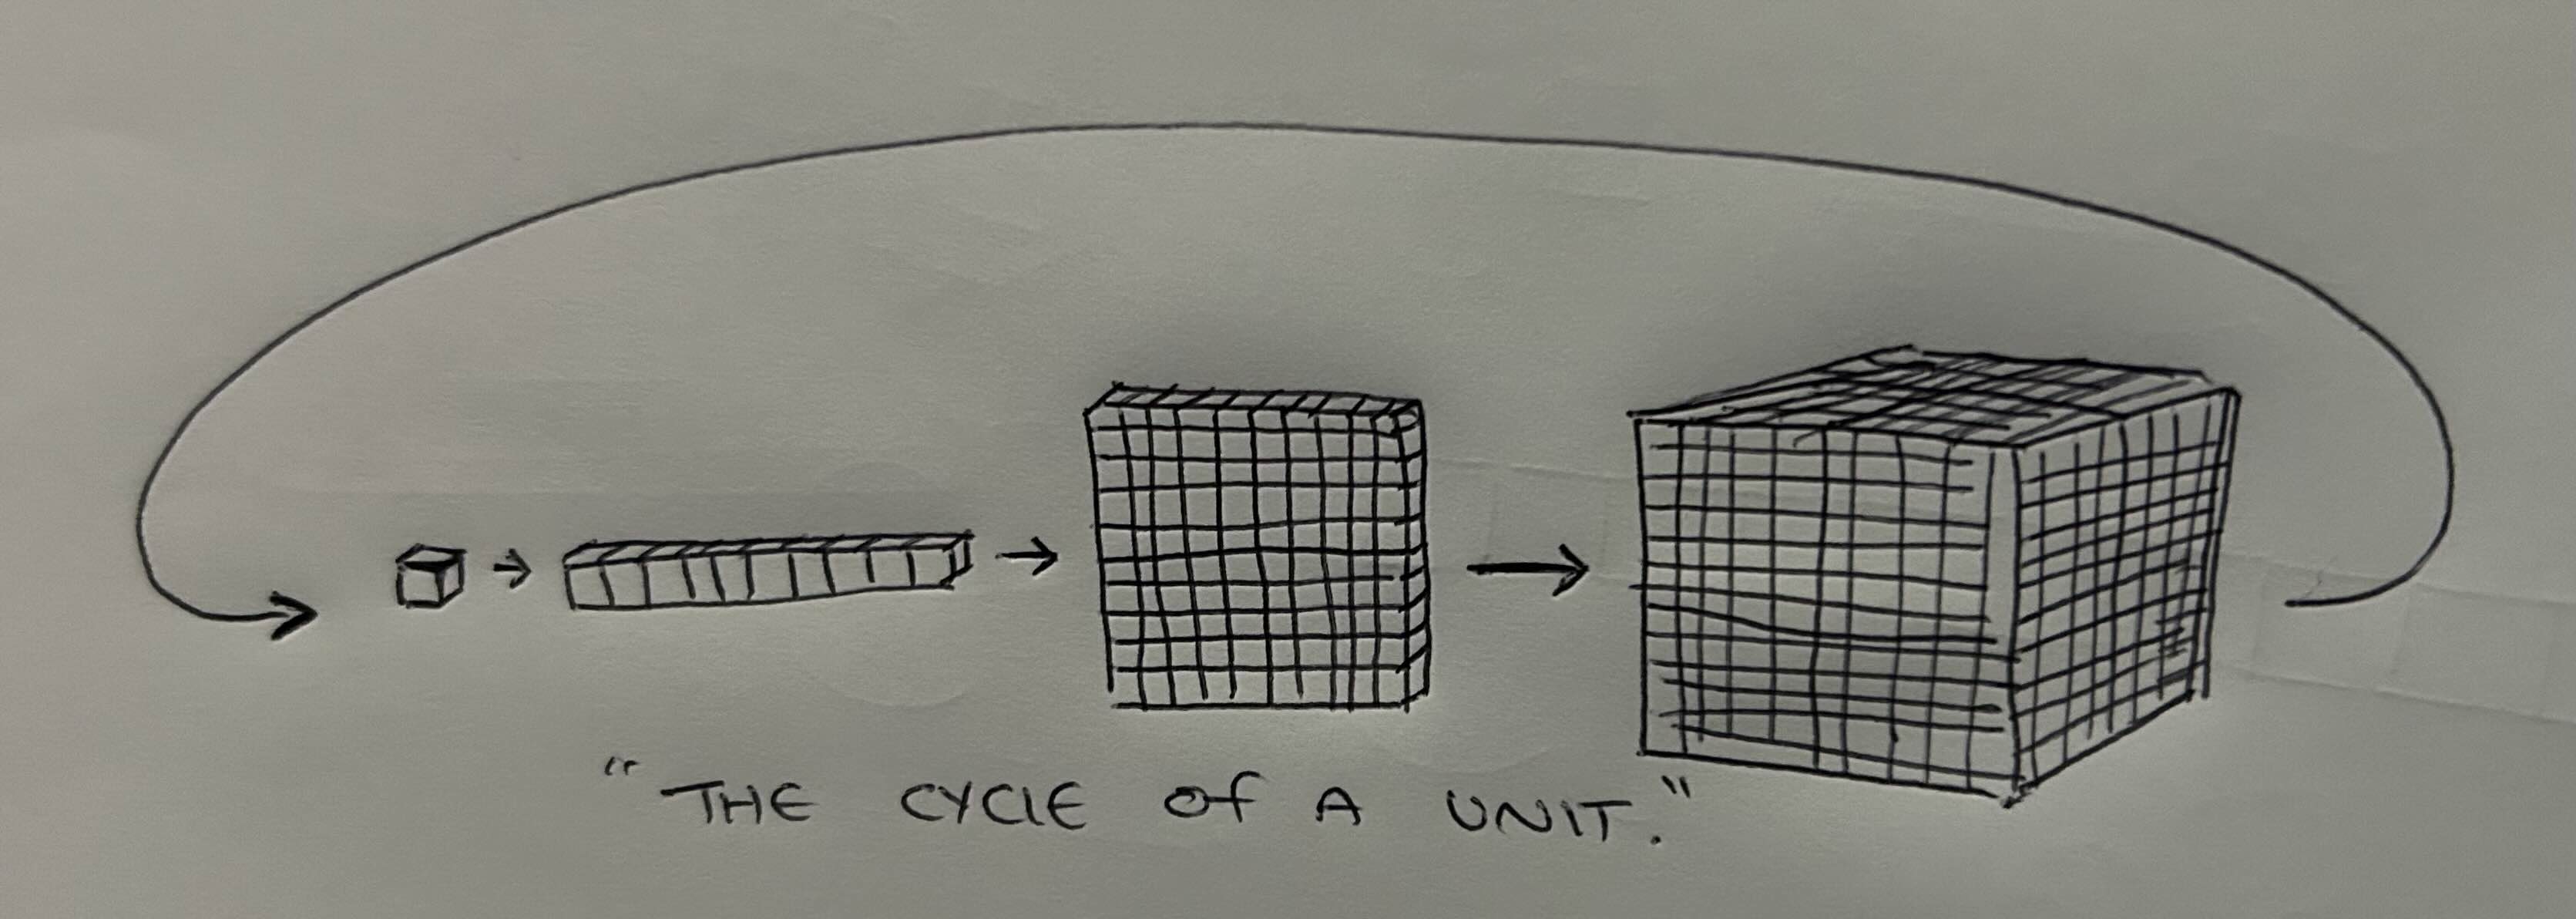 "THE CYCLE Of A UNIT."